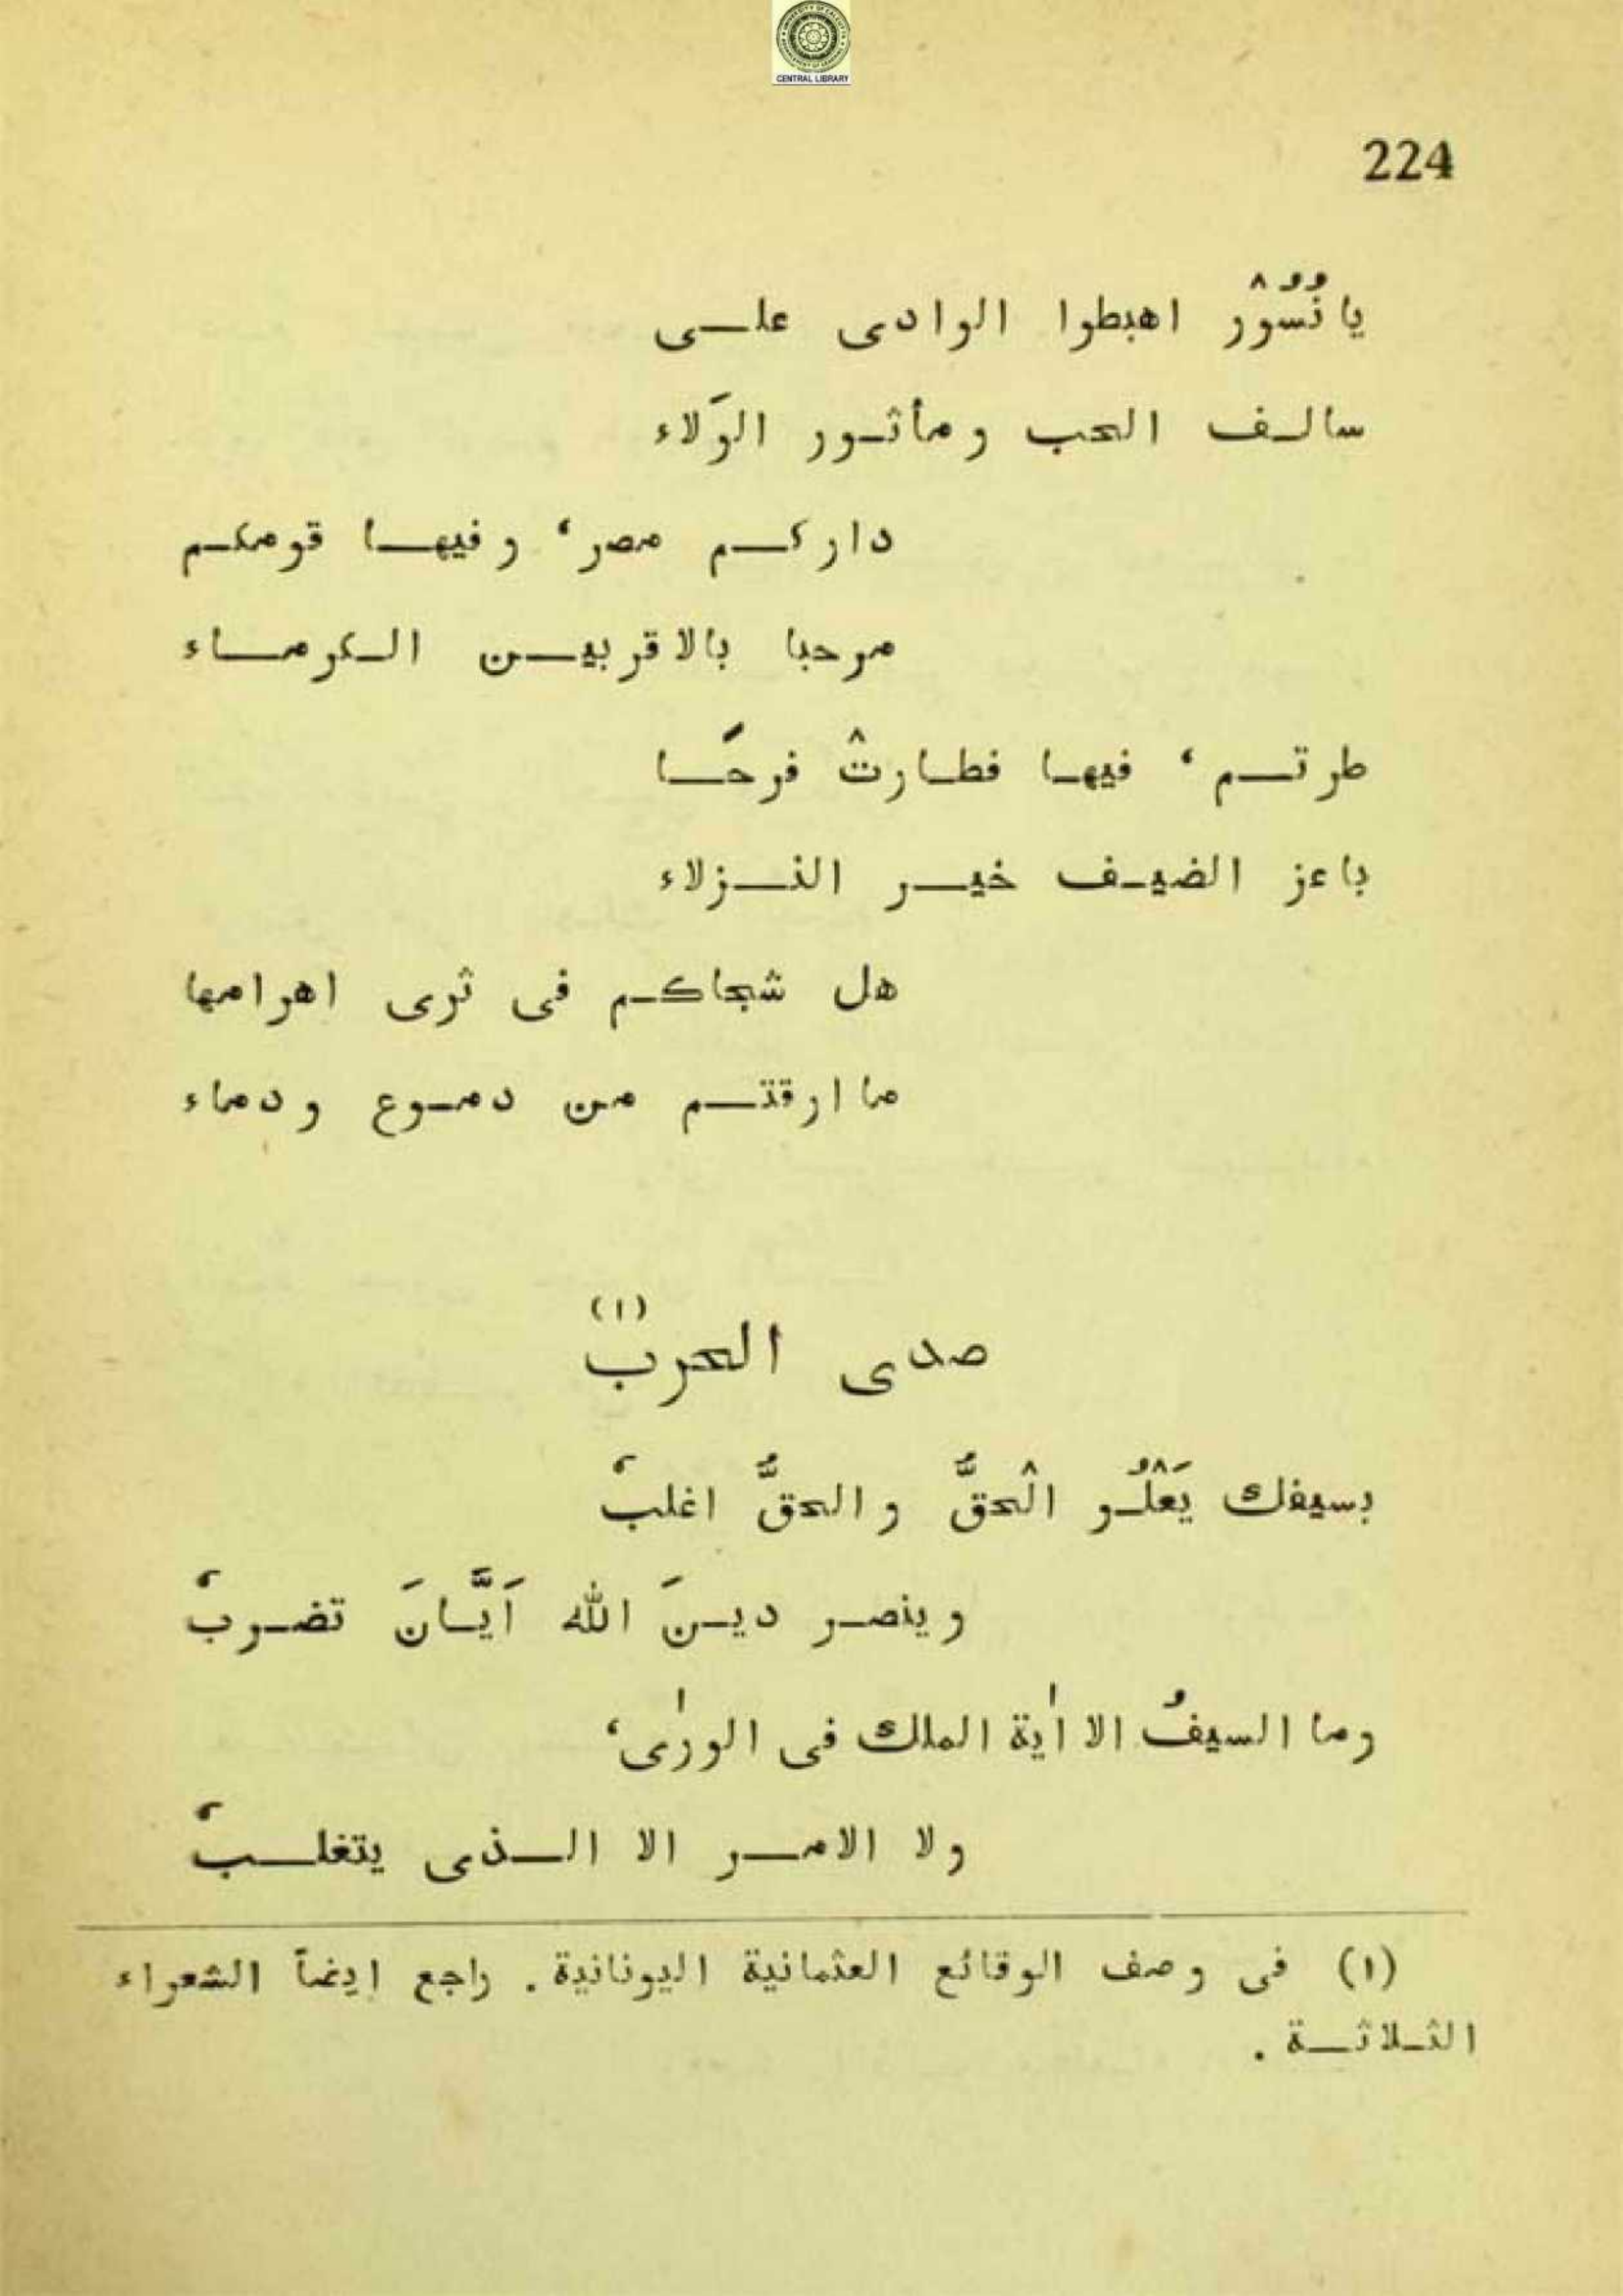 CENTRAL LIBRARY
224
يا نُسُوْر اهبطوا الوادى على
سالف الحب ومأثور الوَلاء
داركم مصر، وفيها قومكم
مرحبا بالاقربين الكرماء
طرتم، فيها فطارتْ فرحًا
باعز الضيف خير النزلاء
هل شجاكم فى ثرى اهرامها
ما ارقتم من دموع ودماء
صدى الحرب (١)
بسيفك يَعْلُو الْحقُّ والحقُّ اغلبْ
وينصر دينَ الله اَيَّانَ تضربْ
وما السيفُ الا اٰية الملك فى الورٰى،
ولا الامر الا الذى يتغلبْ
(١) فى وصف الوقائع العثمانية اليونانية. راجع ايضاً الشعراء
الثلاثة.